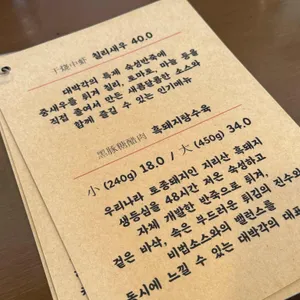 干燒中蝦 칠리새우 40.0
대박각의 특제 숙성반죽에
중새우를 튀겨 칠리, 토마토, 마늘 등을
직접 졸여서 만든 새콤달콤한 소스와
함께 즐길 수 있는 인기메뉴
黑豚糖醋肉 흑돼지탕수육
小 (240g) 18.0 / 大 (450g) 34.0
우리나라 토종돼지인 지리산 흑돼지
생등심을 48시간 저온 숙성하고
자체 개발한 반죽으로 튀겨,
겉은 바삭, 속은 부드러운 튀김의 진수와
비법소스와의 밸런스를
동시에 느낄 수 있는 대박각의 대표